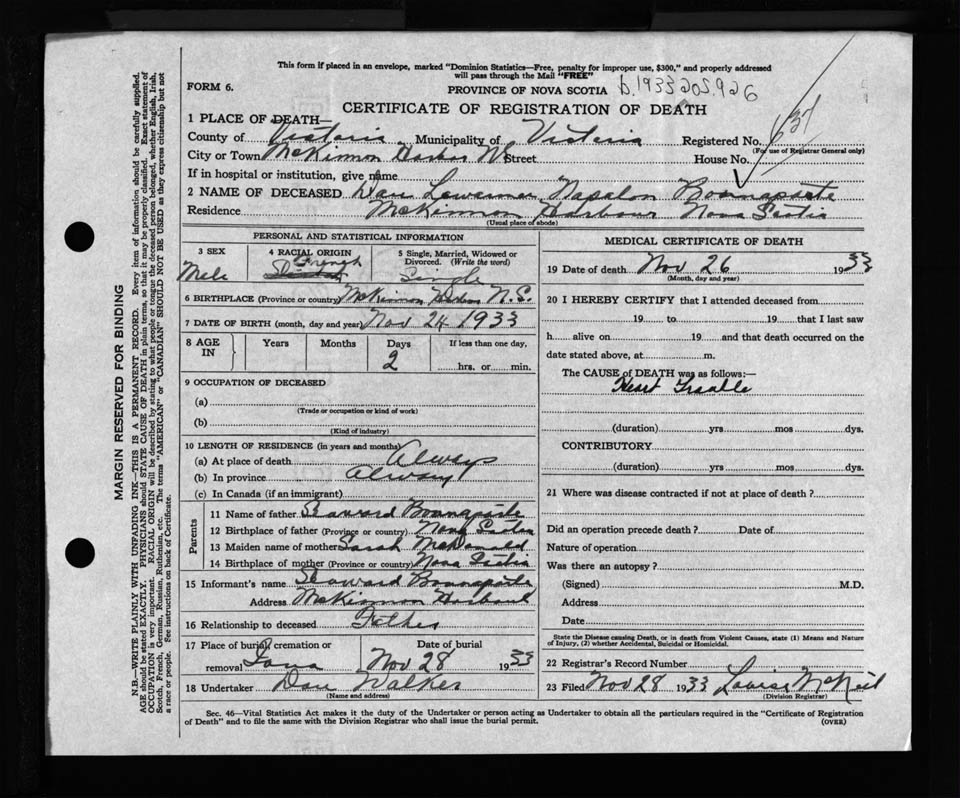 This form if placed in an envelope, marked "Dominion Statistics—Free, penalty for improper use, $300," and properly addressed
will pass through the Mail "FREE"
FORM 6.
PROVINCE OF NOVA SCOTIA b.1933 205.926
CERTIFICATE OF REGISTRATION OF DEATH
1 PLACE OF DEATH—
County of Victoria Municipality of Victoria Registered No.
(For use of Registrar General only)
City or Town McKinnon Harbor NS Street House No.
If in hospital or institution, give name
2 NAME OF DECEASED Dan Napalon Bonnaparte
Residence McKinnon Harbour Nova Scotia
(Usual place of abode)
PERSONAL AND STATISTICAL INFORMATION
3 SEX 4 RACIAL ORIGIN 5 Single, Married, Widowed or
Divorced. (Write the word)
Male French Single
6 BIRTHPLACE (Province or country) McKinnon Harbor N.S.
7 DATE OF BIRTH (month, day and year) Nov 24 1933
8 AGE IN Years Months Days If less than one day,
2 hrs. or min.
9 OCCUPATION OF DECEASED
(a)
(Trade or occupation or kind of work)
(b)
(Kind of industry)
10 LENGTH OF RESIDENCE (in years and months)
(a) At place of death Always
(b) In province Always
(c) In Canada (if an immigrant)
Parents
11 Name of father Bonnaparte
12 Birthplace of father (Province or country) Nova Scotia
13 Maiden name of mother Sarah McDonald
14 Birthplace of mother (Province or country) Nova Scotia
15 Informant's name Bonnaparte
Address McKinnon Harbour
16 Relationship to deceased Father
17 Place of burial, cremation or Date of burial
removal Iona Nov 28 1933
18 Undertaker Dan Walker
(Name and address)
MEDICAL CERTIFICATE OF DEATH
19 Date of death Nov 26 1933
(Month, day and year)
20 I HEREBY CERTIFY that I attended deceased from
19 to 19 that I last saw
h alive on 19 and that death occurred on the
date stated above, at m.
The CAUSE of DEATH was as follows:—
Heart Trouble
(duration) yrs mos dys.
CONTRIBUTORY
(duration) yrs mos dys.
21 Where was disease contracted if not at place of death?
Did an operation precede death? Date of
Nature of operation
Was there an autopsy?
(Signed) M.D.
Address
Date
State the Disease causing Death, or in death from Violent Causes, state (1) Means and Nature
of Injury, (2) whether Accidental, Suicidal or Homicidal.
22 Registrar's Record Number
23 Filed Nov 28 1933 Louise McNeil
(Division Registrar)
Sec. 46—Vital Statistics Act makes it the duty of the Undertaker or person acting as Undertaker to obtain all the particulars required in the "Certificate of Registration
of Death" and to file the same with the Division Registrar who shall issue the burial permit. (OVER)
MARGIN RESERVED FOR BINDING
N.B.—WRITE PLAINLY WITH UNFADING INK—THIS IS A PERMANENT RECORD. Every item of information should be carefully supplied.
AGE should be stated EXACTLY. PHYSICIANS should STATE CAUSE OF DEATH in plain terms, so that it may be properly classified. Exact statement of
OCCUPATION is very important. RACIAL ORIGIN will be described by stating to what people or tongue the deceased person belonged, whether English, Irish,
Scotch, French, German, Russian, Ruthenian, etc. The terms "AMERICAN" or "CANADIAN" SHOULD NOT BE USED as they express citizenship but not
a race or people. See instructions on back of Certificate.